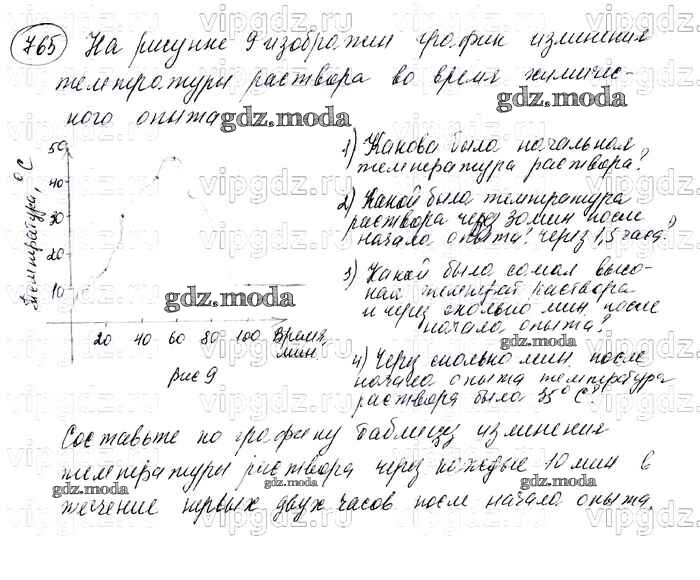 765 На рисунке 9 изображен график изменения
температуры раствора во время химичес-
кого опыта
50
40
30
20
10
Температура, °С
20 40 60 80 100 Время,
мин.
рис 9
1) Какова была начальная
температура раствора?
2) Какой была температура
раствора через 30 мин после
начала опыта? через 1,5 часа?
3) Какой была самая высо-
кая температ раствора
и через сколько мин. после
начала опыта?
4) Через сколько мин после
начала опыта температура
раствора была 35°С?
Составьте по графику таблицу изменения
температуры раствора через каждые 10 мин в
течение первых двух часов после начала опыта.
gdz.moda
gdz.moda
gdz.moda
gdz.moda
gdz.moda
gdz.moda
vipgdz.ru